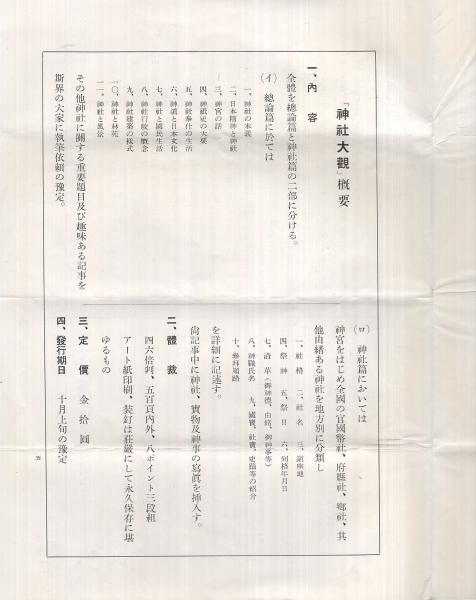 「神社大觀」概要
一、內容
全體を總論篇と神社篇の二部に分ける。
(イ) 總論篇に於ては
一、神社の本義
二、日本精神と神社
三、神宮の話
四、神祇史の大要
五、神社奉仕の生活
六、神道と日本文化
七、神社と國民生活
八、神社行政の概念
九、神社建築の樣式
一〇、神社と林苑
一一、神社と風景
その他神社に關する重要題目及び趣味ある記事を
斯界の大家に執筆依頼の豫定。
(ロ) 神社篇においては
神宮をはじめ全國の官國幣社、府縣社、鄕社、其
他由緖ある神社を地方別に分類し
一、社格 二、社名 三、鎭座地
四、祭神 五、祭日 六、列格年月日
七、沿革(御神德、由緖、御神事等)
八、神職氏名 九、國寶、社寶、史蹟等の紹介
十、參拜順路
を詳細に記述す。
尙記事中に神社、寶物及神事の寫眞を挿入す。
二、體裁
四六倍判、五百頁內外、八ポイント三段組
アート紙印刷、裝釘は莊嚴にして永久保存に堪
ゆるもの
三、定價 金拾圓
四、發行期日 十月上旬の豫定